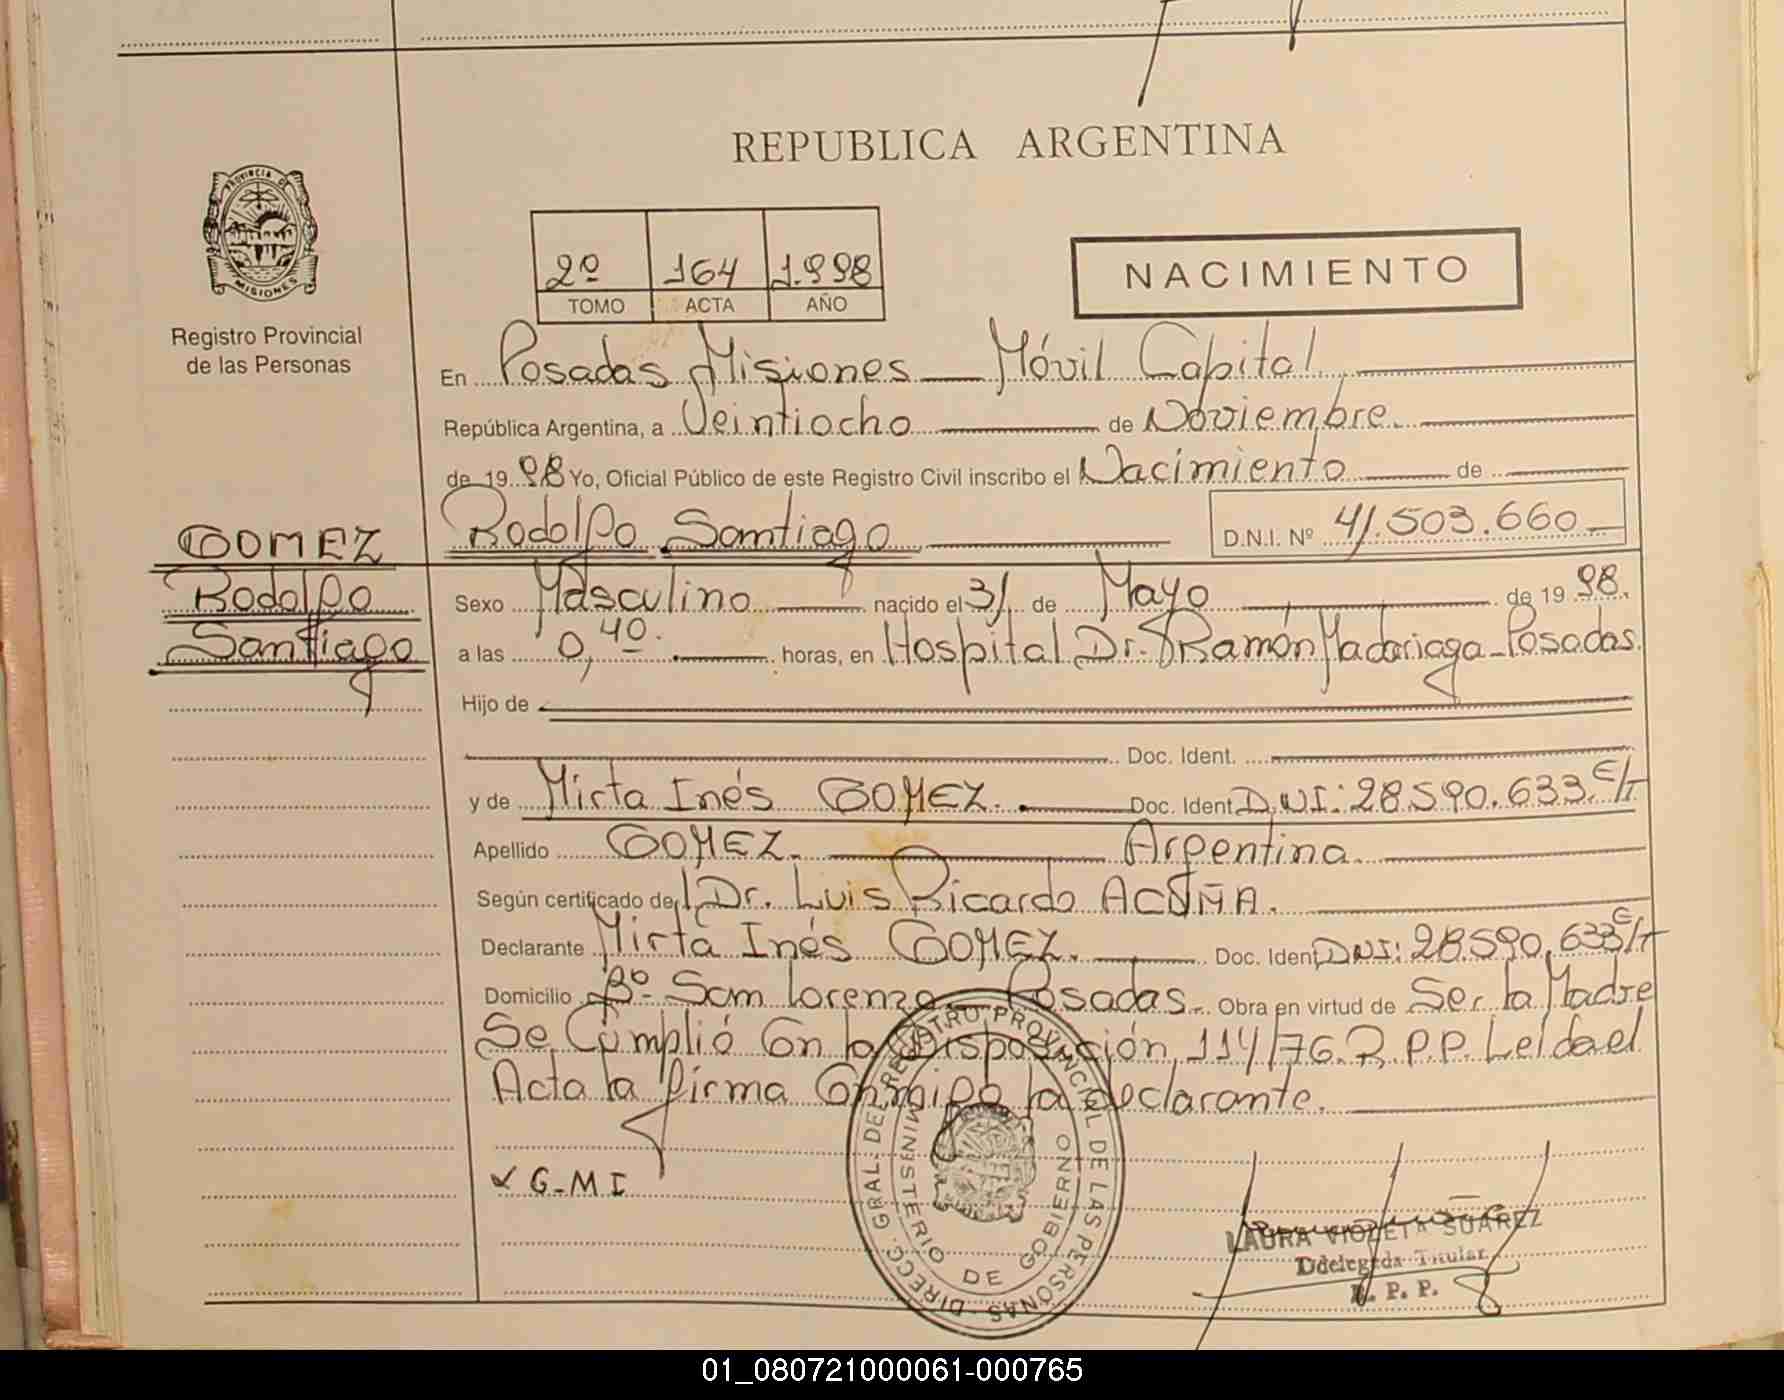 REPUBLICA ARGENTINA
PROVINCIA DE MISIONES
Registro Provincial
de las Personas
2º 164 1.998
TOMO ACTA AÑO
NACIMIENTO
En Posadas Misiones — Móvil Capital
República Argentina, a Veintiocho de Noviembre.
de 19 98 Yo, Oficial Público de este Registro Civil inscribo el Nacimiento de
Rodolfo Santiago D.N.I. Nº 41.503.660
GOMEZ
Rodolfo
Santiago
Sexo Masculino nacido el 31 de Mayo de 19 98.
a las 0,40. horas, en Hospital Dr. Ramón Madariaga - Posadas.
Hijo de
Doc. Ident.
y de Mirta Inés GOMEZ. Doc. Ident. D.N.I: 28.590.633 C/T
Apellido GOMEZ. Argentina.
Según certificado del Dr. Luis Ricardo ACUÑA.
Declarante Mirta Inés GOMEZ. Doc. Ident. DNI: 28.590.633 C/T
Domicilio Bº San Lorenzo - Posadas. Obra en virtud de Ser la Madre
Se Cumplió Con la Disposición 114/76.R.P.P. Leída el
Acta la firma Conmigo la declarante.
G-MI
DIRECC. GRAL. DEL REGISTRO PROVINCIAL DE LAS PERSONAS
MINISTERIO DE GOBIERNO
LAURA VIOLETA SUAREZ
Ddelegada Titular
R. P. P.
01_080721000061-000765